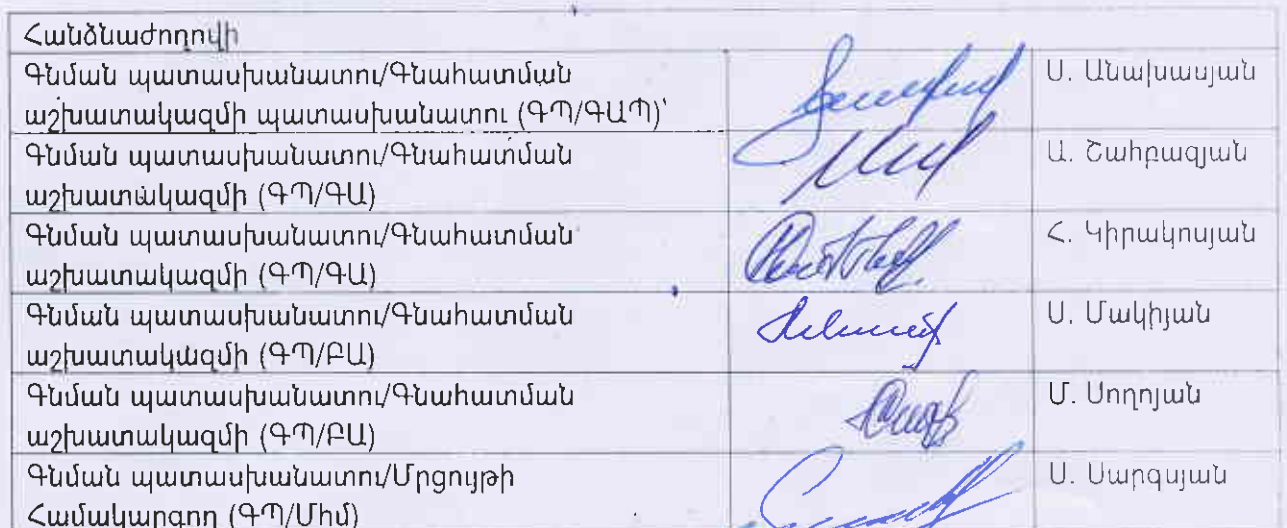 Հանձնաժողովի
Գնման պատասխանատու/Գնահատման
աշխատակազմի պատասխանատու (ԳՊ/ԳԱՊ)՝
Ս. Անախասյան
Գնման պատասխանատու/Գնահատման
աշխատակազմի (ԳՊ/ԳԱ)
Ա. Շահբազյան
Գնման պատասխանատու/Գնահատման
աշխատակազմի (ԳՊ/ԳԱ)
Հ. Կիրակոսյան
Գնման պատասխանատու/Գնահատման
աշխատակազմի (ԳՊ/ԲԱ)
Ս. Մակիյան
Գնման պատասխանատու/Գնահատման
աշխատակազմի (ԳՊ/ԲԱ)
Մ. Սողոյան
Գնման պատասխանատու/Մրցույթի
Համակարգող (ԳՊ/Մհմ)
Ս. Սարգսյան